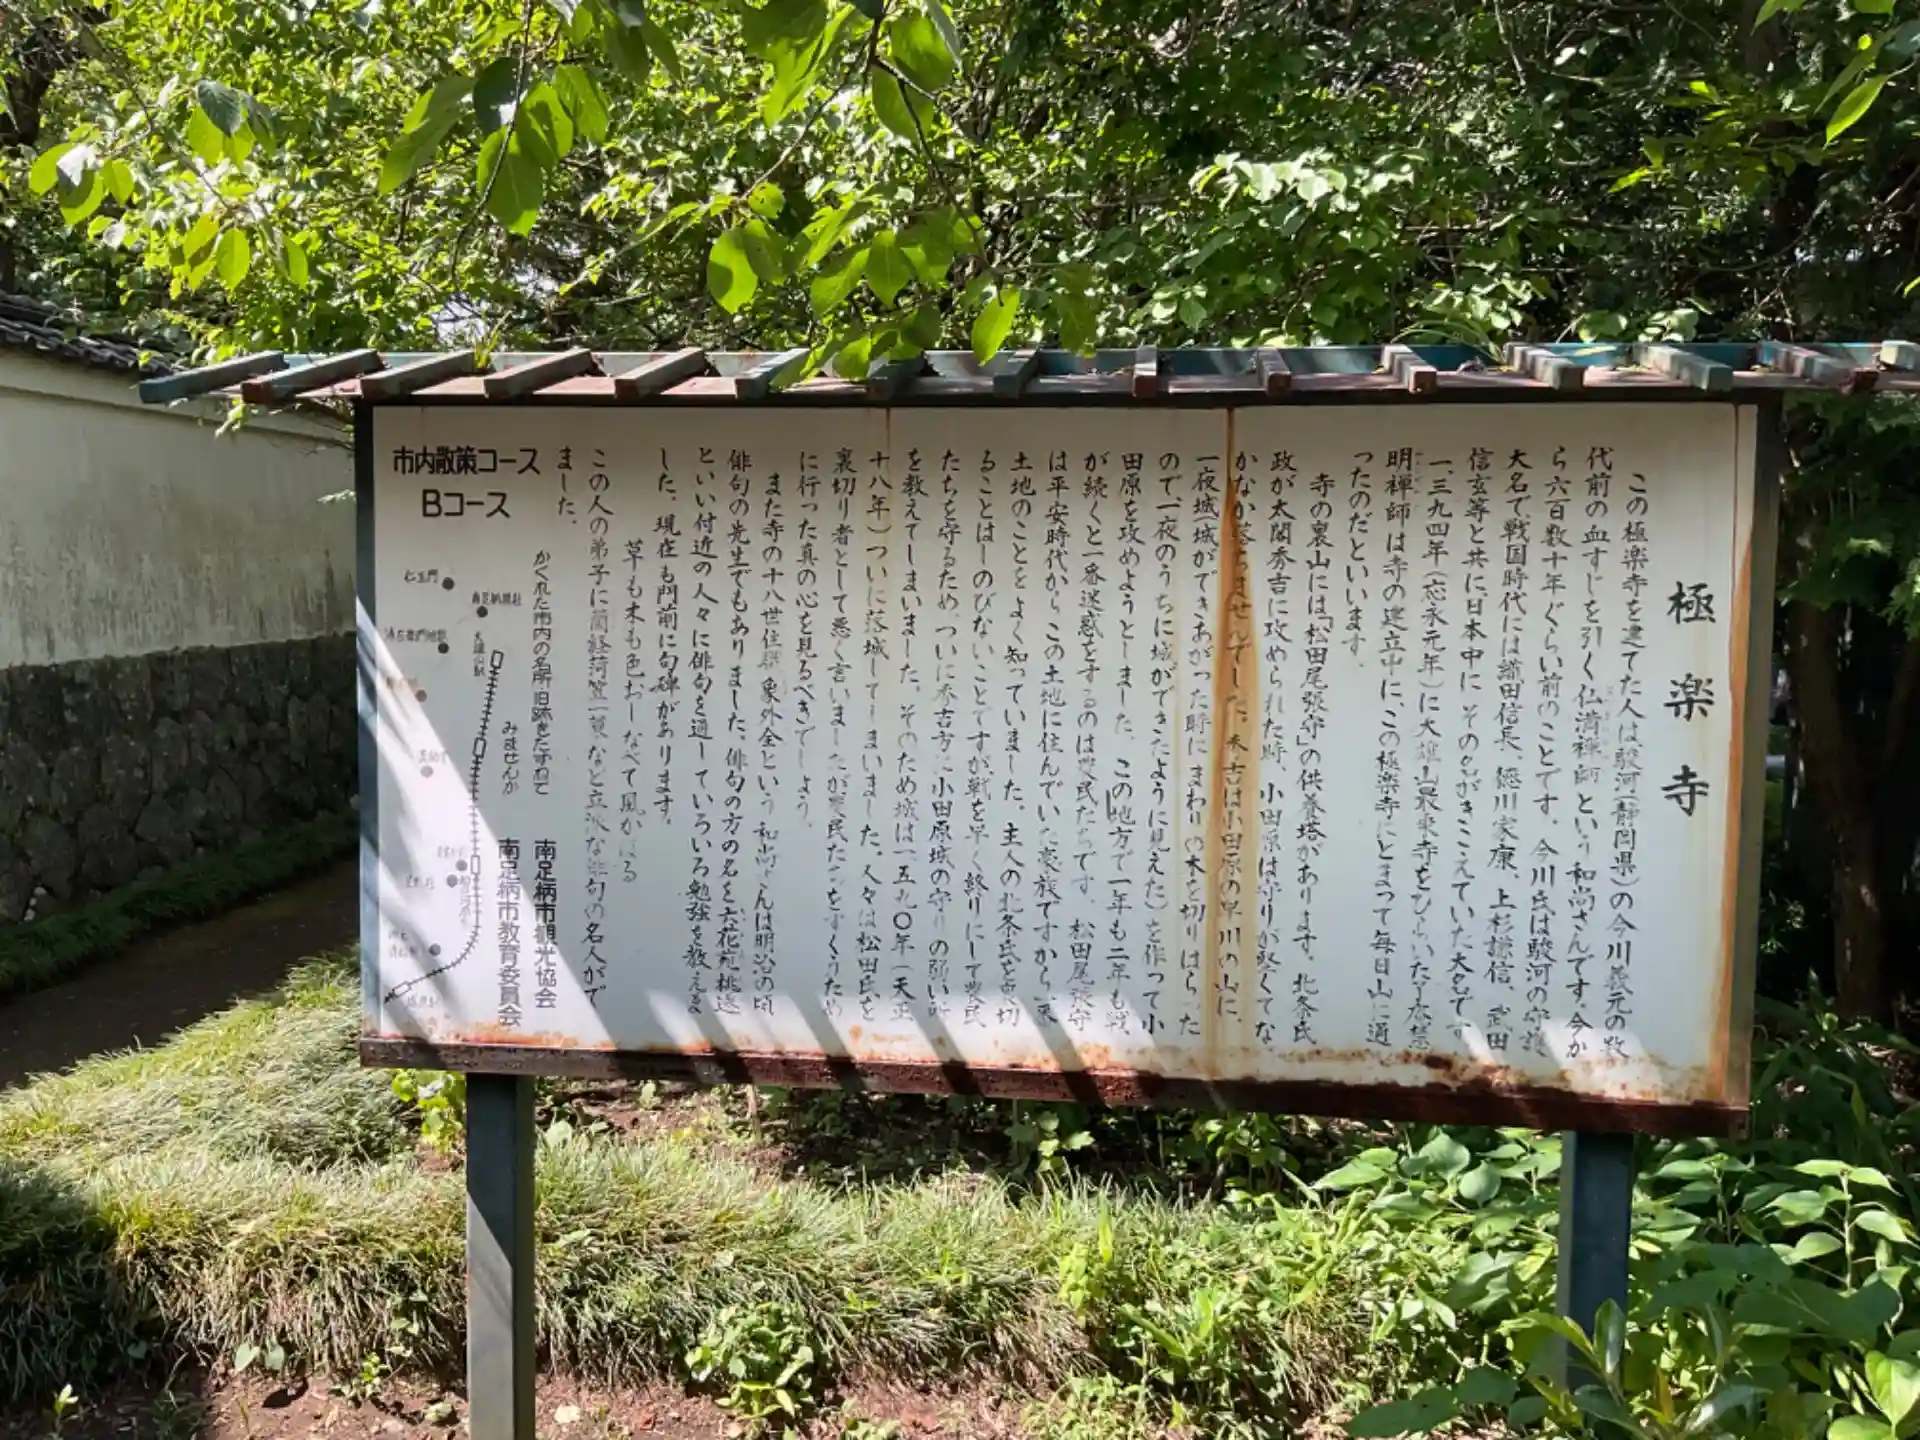 極楽寺
この極楽寺を建てた人は駿河(静岡県)の今川義元の数
代前の血すじを引く仏満禅師という和尚さんです。今か
ら六百数十年ぐらい前のことです。今川氏は駿河の守護
大名で、戦国時代には織田信長、徳川家康、上杉謙信、武田
信玄等と共に、日本中にその名がきこえていた大名です
一、三九四年(応永元年)に大雄山最乗寺をひらいた了庵慧
明禅師は寺の建立中に、この極楽寺にとまって毎日山に通
ったのだといいます。
寺の裏山には「松田尾張守」の供養塔があります。北条氏
政が太閤秀吉に攻められた時、小田原は守りが堅くてな
かなか落ちませんでした。秀吉は小田原の早川の山に、
一夜城(城ができあがった時にまわりの木を切りはらった
ので、一夜のうちに城ができたように見えた)を作って小
田原を攻めようとしました。この地方で一年も二年も戦
が続くと一番迷惑をするのは農民たちです。松田尾張守
は平安時代から、この土地に住んでいた豪族ですから、東
土地のことをよく知っていました。主人の北条氏を裏切
ることはしのびないことですが戦を早く終りにして農民
たちを守るため、ついに秀吉方に小田原城の守りの弱い所
を教えてしまいました。そのため城は一五九〇年(天正
十八年)ついに落城してしまいました。人々は松田氏を
裏切り者として悪く言いましたが農民たちをすくうため
に行った真の心を見るべきでしょう。
また寺の十八世住職象外全という和尚さんは明治の頃
俳句の先生でもありました。俳句の方の名を六花苑桃逐
といい付近の人々に俳句を通していろいろ勉強を教えま
した。現在も門前に句碑があります。
草も木も色おしなべて風かほる
この人の弟子に など立派な俳句の名人がで
ました。
かくれた市内の名所・旧跡をたずねて
みませんか
南足柄市観光協会
南足柄市教育委員会
市内散策コース
Bコース
仁王門
大雄山駅